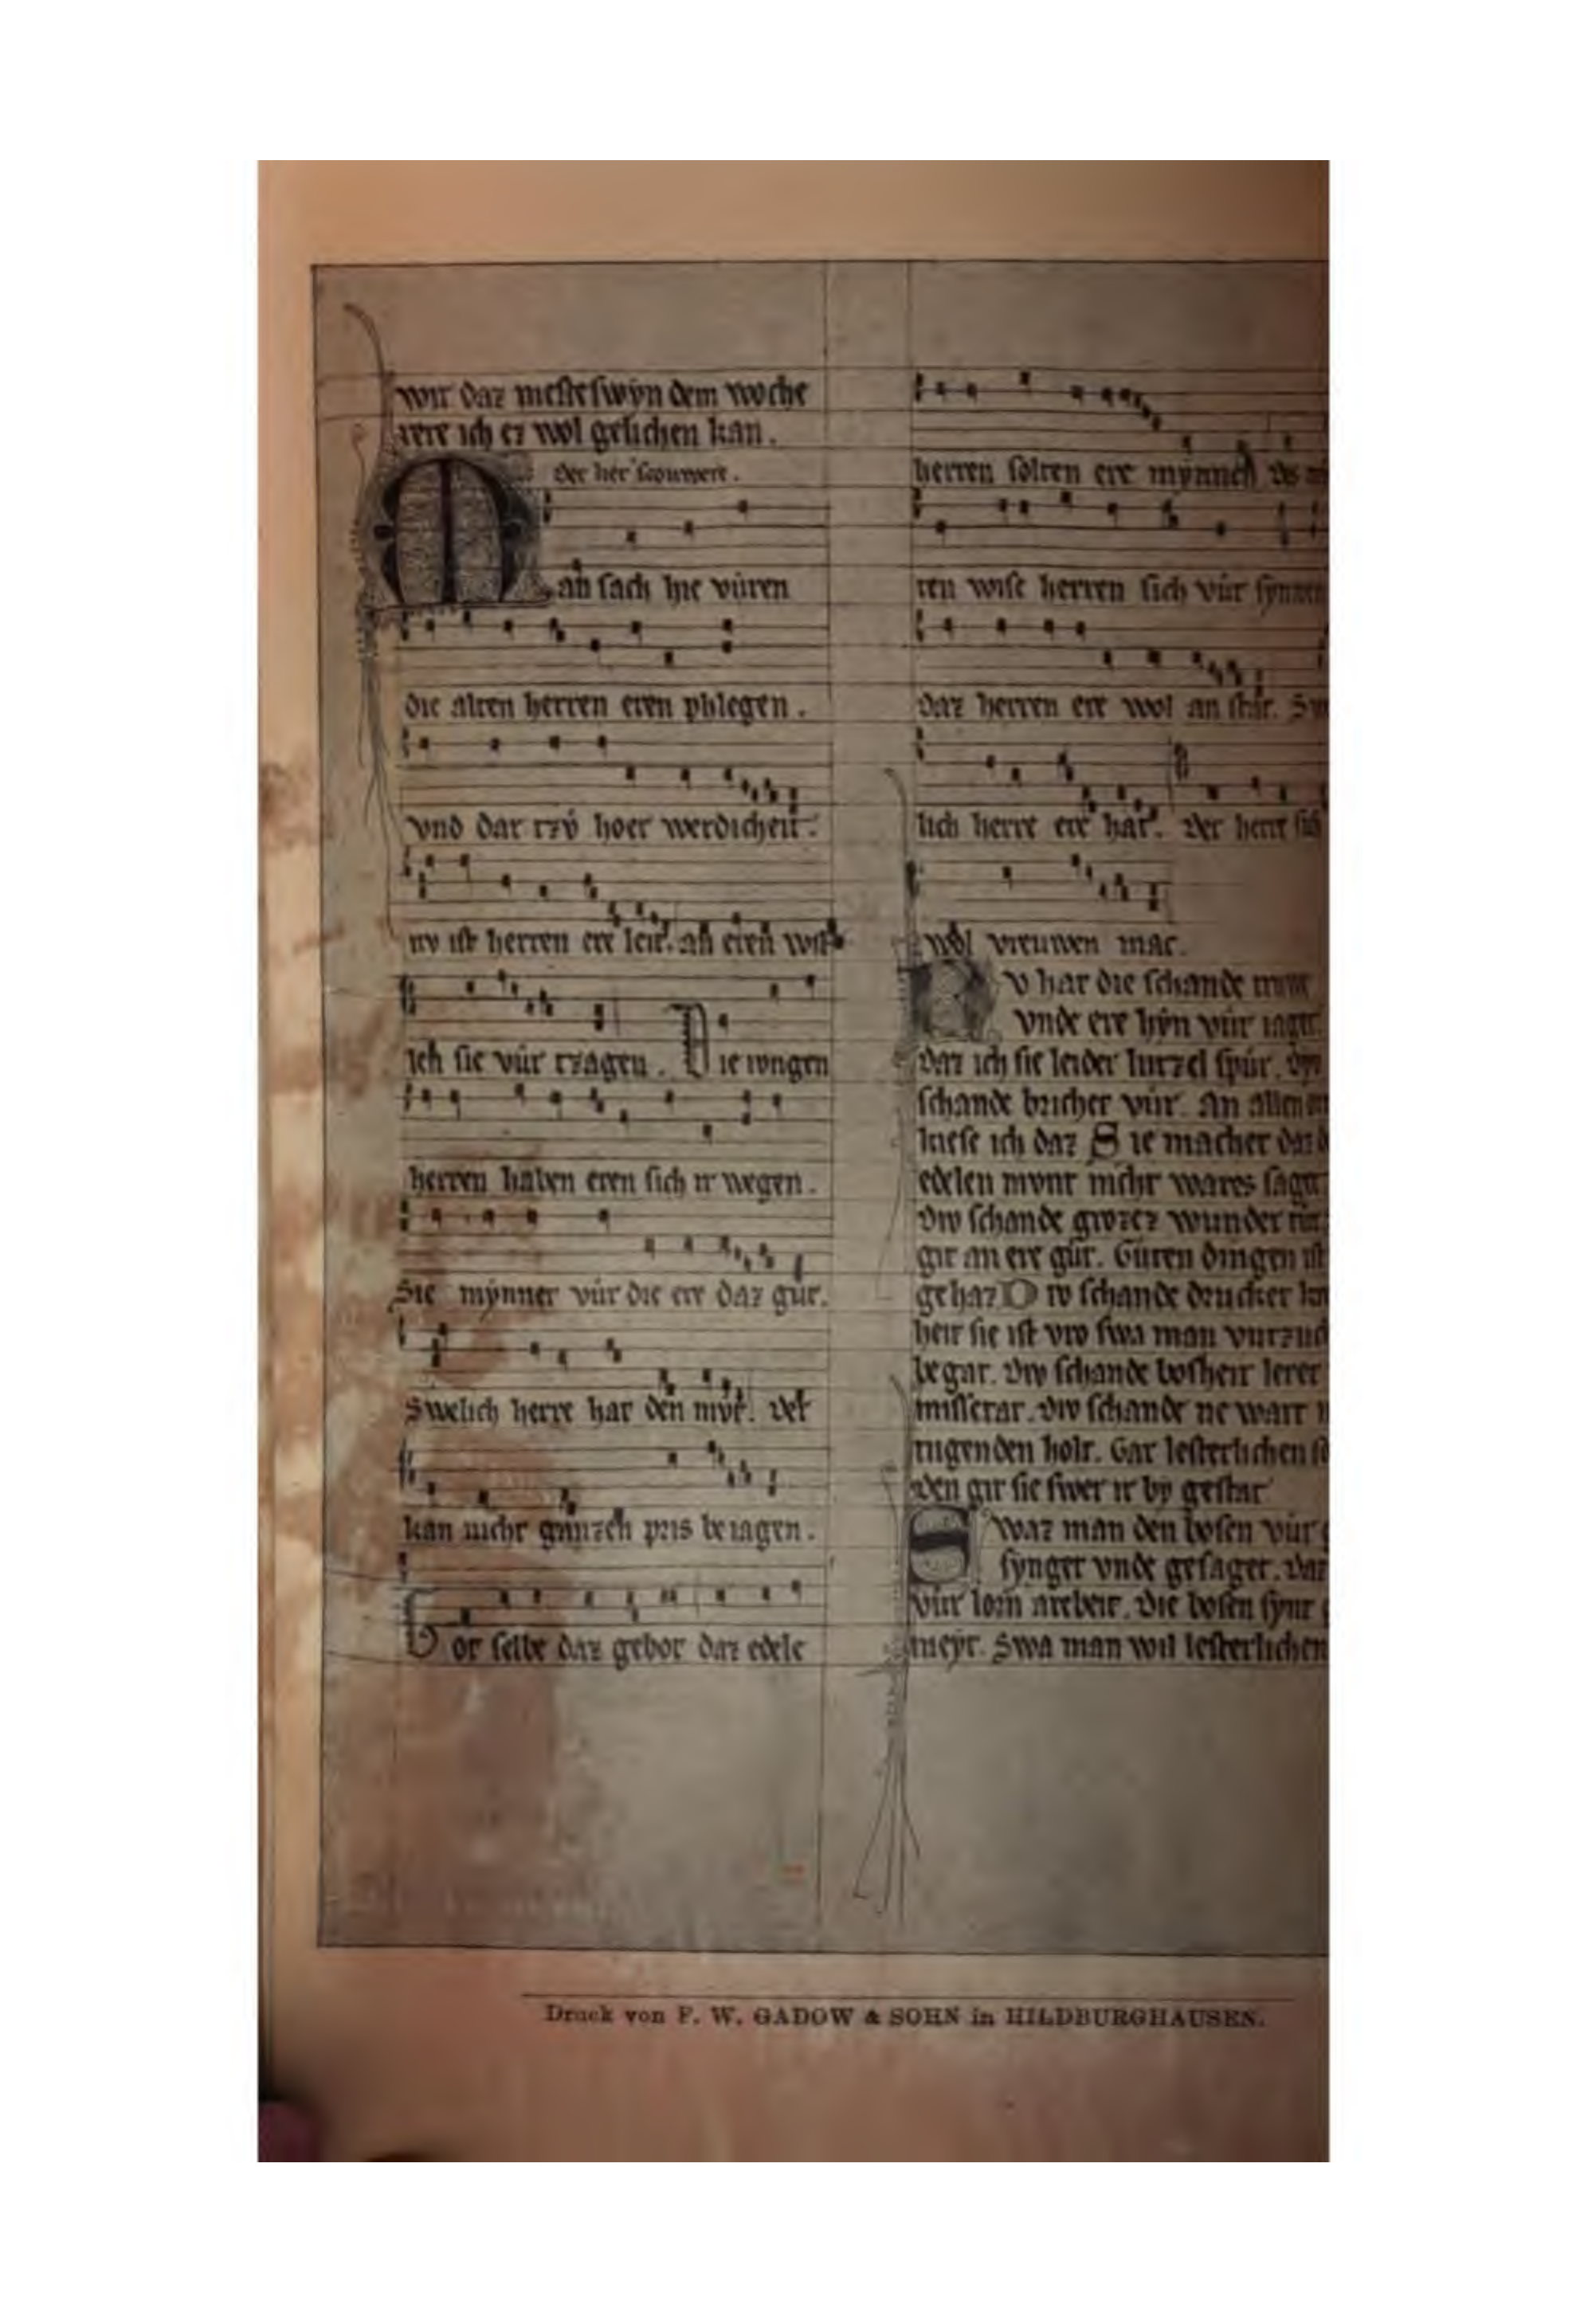 wir daz meste swyn dem woche
rere ich ez wol gelichen kan.
Der her
Man sach hie vůren
die alten herren eren phlegen.
vnd dar tzv̊ hoer werdicheit.
nv ist herren ere leit. an eren wil
ich sie vůr tzagen. Die iungen
herren haben eren sich ir wegen.
Sie mynnet vůr die ere daz gůt.
Swelich herre hat den mv̊t. Der
kan nicht gantzen pris beiagen.
Vor selbe daz gebot daz edele
herren solten ere mynnen
ten wise herren sich vůr
daz herren ere wol an stat.
lich herre ere hat. Der herre
wol vreuwen mac.
Nv hat die schande
vnde ere hyn vůr iaget
daz ich sie leider lutzel spůr. Div
schande brichet vůr. An allen
kiese ich daz Sie machet daz
edelen mvnt nicht wares saget
Div schande grozez wunder
git an ere gůt. Gůten dingen ist
gehaz Div schande drucket
heit sie ist vro swa man
begat. Div schande bosheit leret
missetat. Div schande ne wart
tugenden holt. Gar lesterlichen
den git sie swer ir by gestat
Swaz man den bosen vůr
synget vnde gesaget. Daz
vůr lorn arebeit. Die bosen synt
meyt. Swa man wil lesterlichen
Druck von F. W. GADOW & SOHN in HILDBURGHAUSEN.